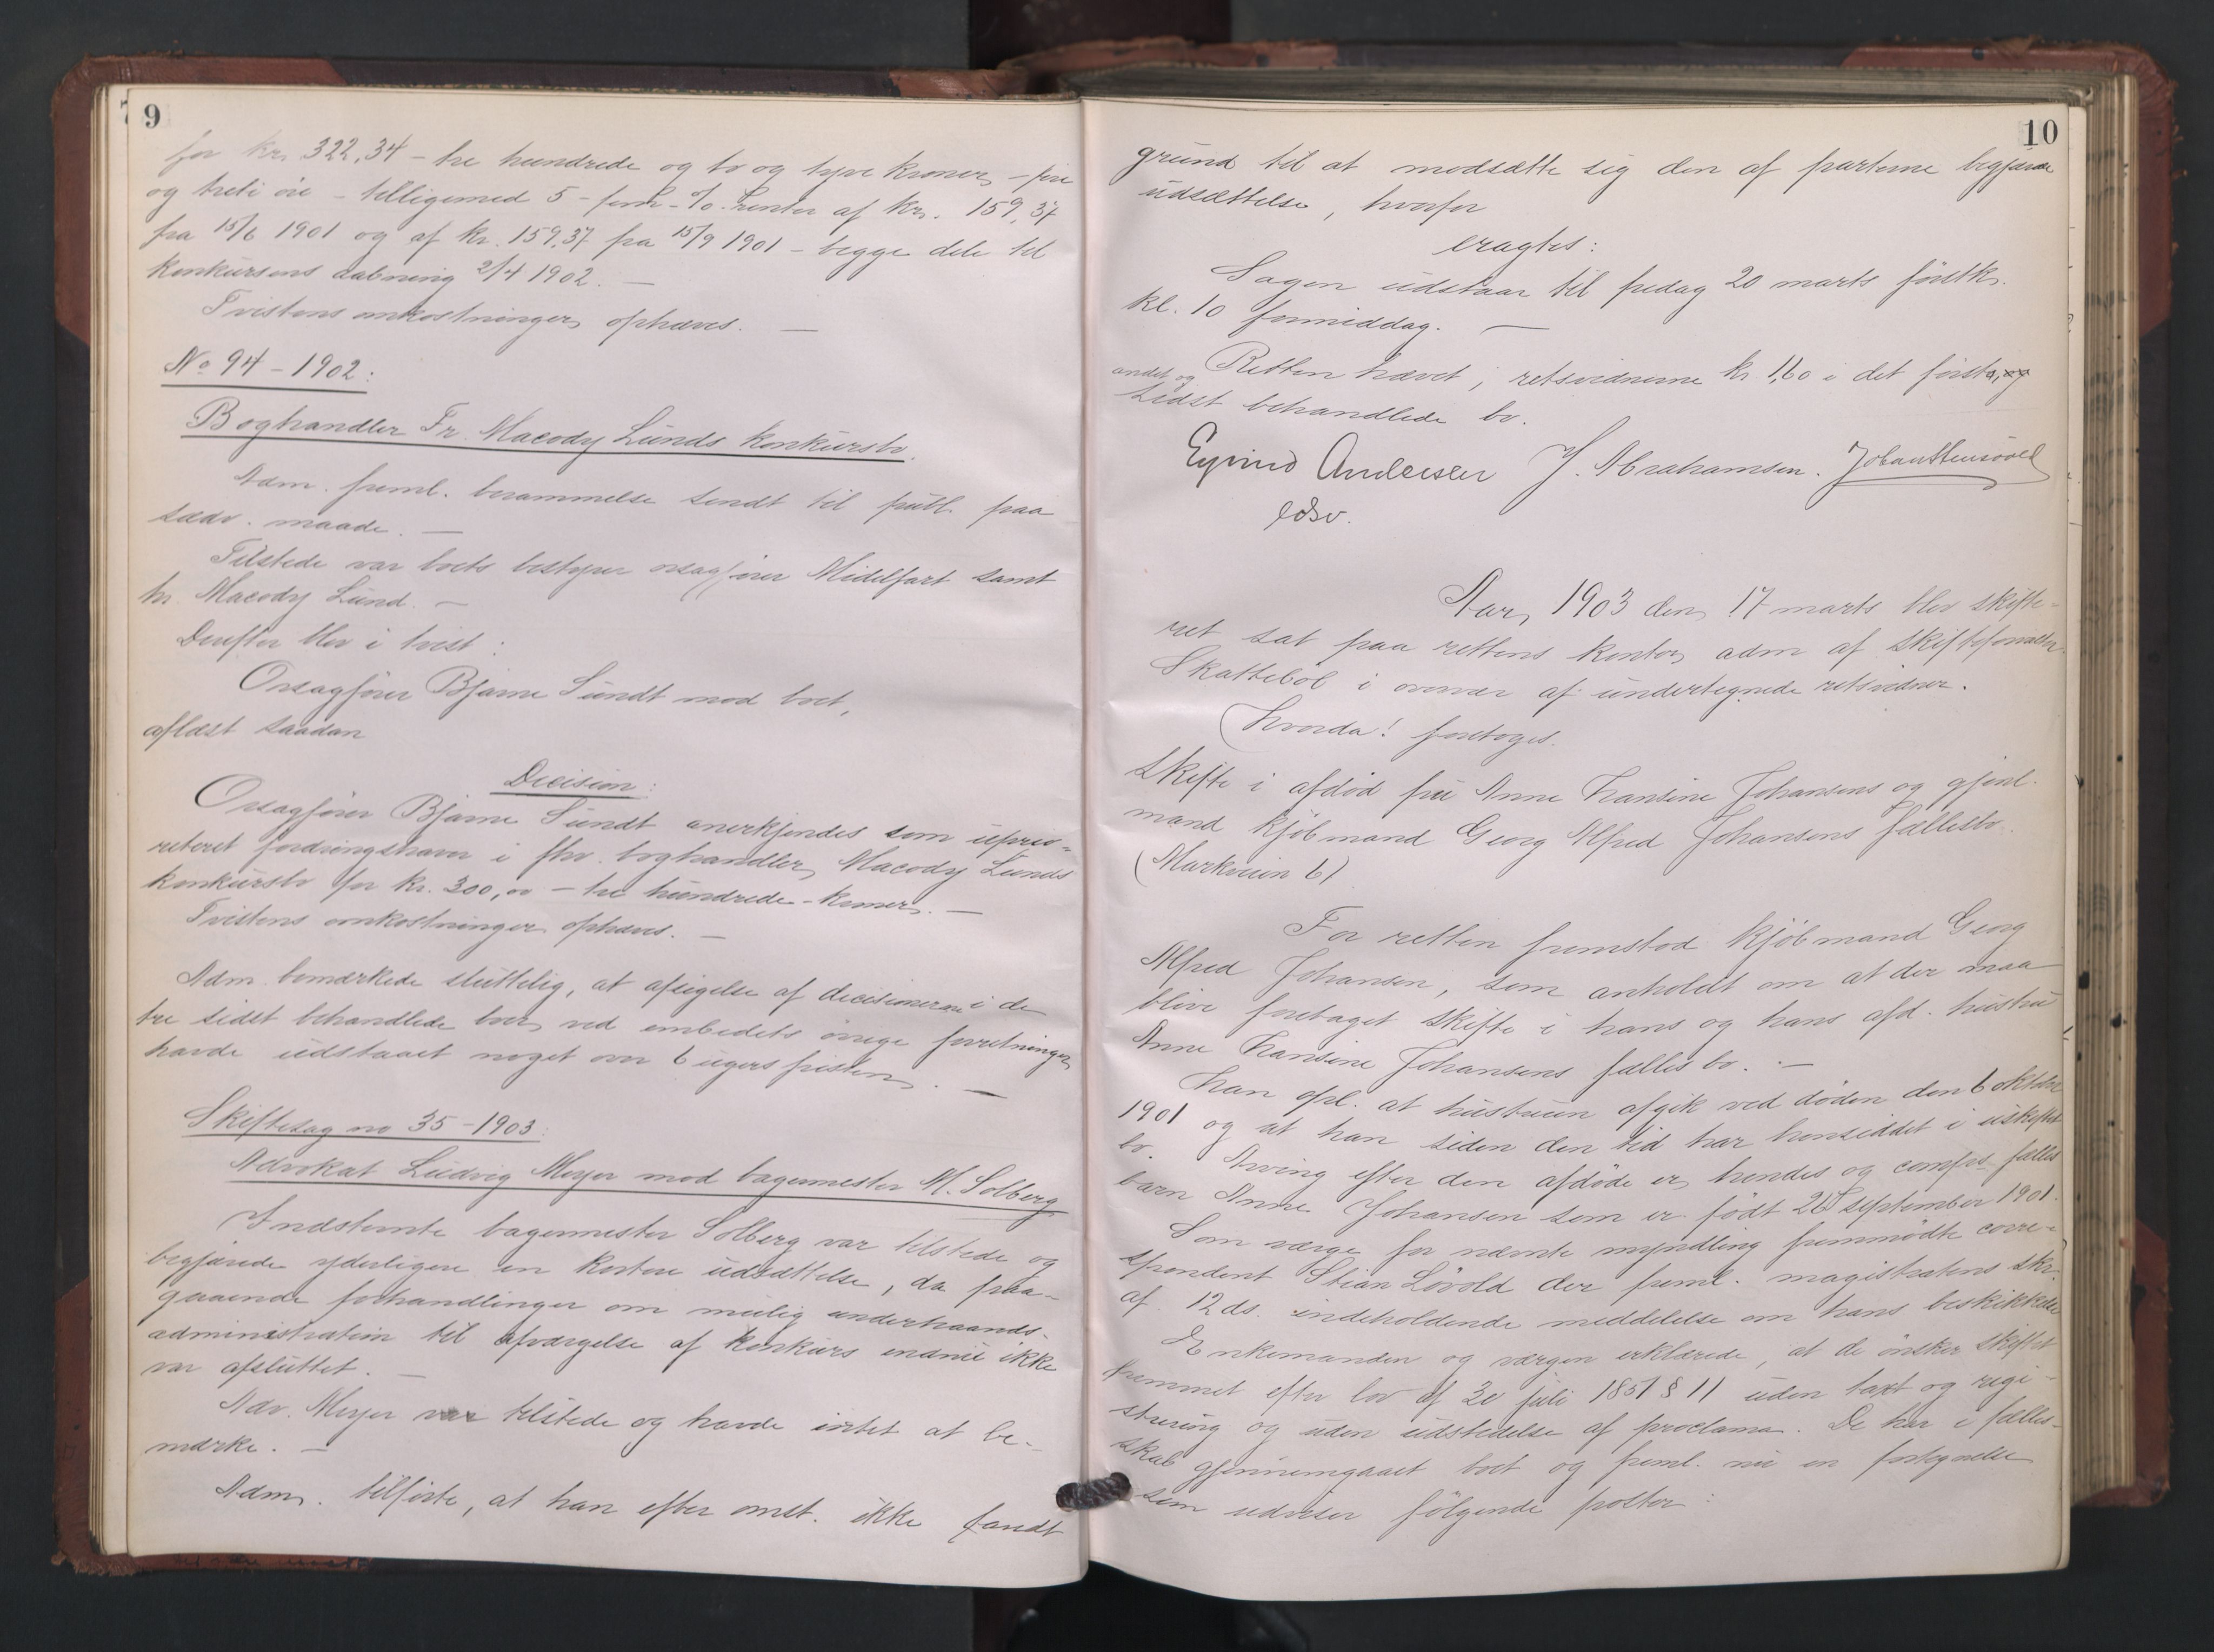 9
for kr. 322,34 – tre hundrede og to og tyve kroner – fire
og treti øre – tilligemed 5 – fem – % renter af kr. 159,37
fra 15/6 1901 og af kr. 159,37 fra 15/9 1901 – begge dele til
konkursens aabning 2/4 1902. –
Tvistens omkostninger ophæves. –
No 94 – 1902:
Boghandler Fr. Macody Lunds konkursbo.
Adm. freml. berammelse sendt til publ. paa
sædv. maade. –
Tilstede var boets bestyrer orsagfører Midelfart samt
hr. Macody Lund. –
Derefter blev i tvist:
Orsagfører Bjarne Sundt mod boet,
aflæst saadan
Decision:
Orsagfører Bjarne Sundt anerkjendes som uprio=
riteret fordringshaver i fhv. boghandler Macody Lunds
konkursbo for kr. 300,00 – tre hundrede – kroner. –
Tvistens omkostninger ophæves. –
Adm. bemærkede sluttelig, at afsigelse af decisionerne i de
tre sidst behandlede boer ved embedets øvrige forretninger
havde udstaaet noget over 6 ugers fristen. –
Skiftesag no 35 – 1903:
Advokat Ludvig Meyer mod bagermester M. Solberg
Indstevnte bagermester Solberg var tilstede og
begjærede yderligere en kortere udsættelse, da paa-
gaaende forhandlinger om mulig underhaands-
administration til afværgelse af konkurs endnu ikke
var afsluttet. –
Adv. Meyer var tilstede og havde intet at be-
mærke. –
Adm. tilførte, at han efter omst. ikke fandt
10
grund til at modsætte sig den af parterne begjærede
udsættelse, hvorfor
eragtes:
Sagen udstaar til fredag 20 marts førstk.
kl. 10 formiddag. –
Retten hævet; retsvidnerne kr 1,60 i det første, og
andet og
sidst behandlede bo.
Eyvind Andersen J. Abrahamsen. Johan Stensvold
edsv.
Aar 1903 den 17 marts blev skifte-
ret sat paa rettens kontor adm af skifteforvalter
Skattebøl i overvær af undertegnede retsvidner.
Hvorda! foretoges.
Skifte i afdød fru Anne Hansine Johansens og gjenl.
mand kjøbmand Georg Alfred Johansens fællesbo.
(Markveien 6)
For retten fremstod kjøbmand Georg
Alfred Johansen, som anholdt om at der maa
blive foretaget skifte i hans og hans afd. hustru
Anne Hansine Johansens fælles bo. –
Han opl. at hustruen afgik ved døden den 6 oktober
1901 og at han siden den tid har hensiddet i uskiftet
bo. Arving efter den afdøde er hendes og fælles
barn Anne Johansen som er født 26 september 1901.
Som værge for nævnte myndling fremmødte corre-
spondent Stian Løvold der freml. magistratens skr.
af 12 ds. indeholdende meddelelse om hans beskikkelse
Enkemanden og værgen erklærede, at de ønsker skiftet
fremmet efter lov af 30 juli 1851 § 11 uden taxt og regi-
strering og uden udstedelse af proclama. De har i fælles-
skab gjennemgaaet boet og freml. nu en fortegnelse
som udviser følgende poster: